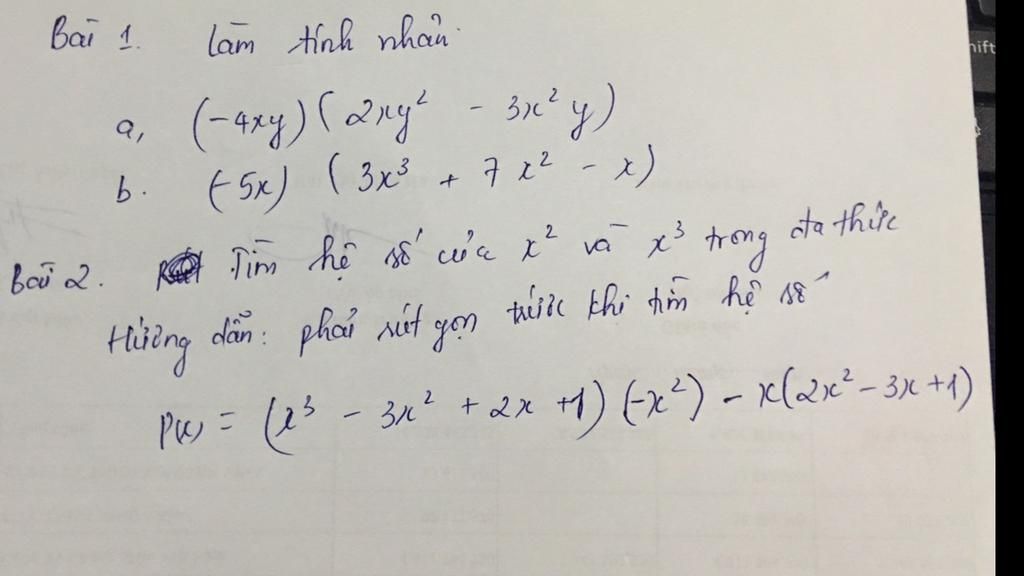 Bài 1. Làm tính nhân.
a, (-4xy)(2xy² - 3x²y)
b. (-5x) (3x³ + 7x² - x)
Bài 2. Tìm hệ số của x² và x³ trong đa thức
Hướng dẫn: phải rút gọn trước khi tìm hệ số
P(x) = (x³ - 3x² + 2x + 1)(-x²) - x(2x² - 3x + 1)
hift